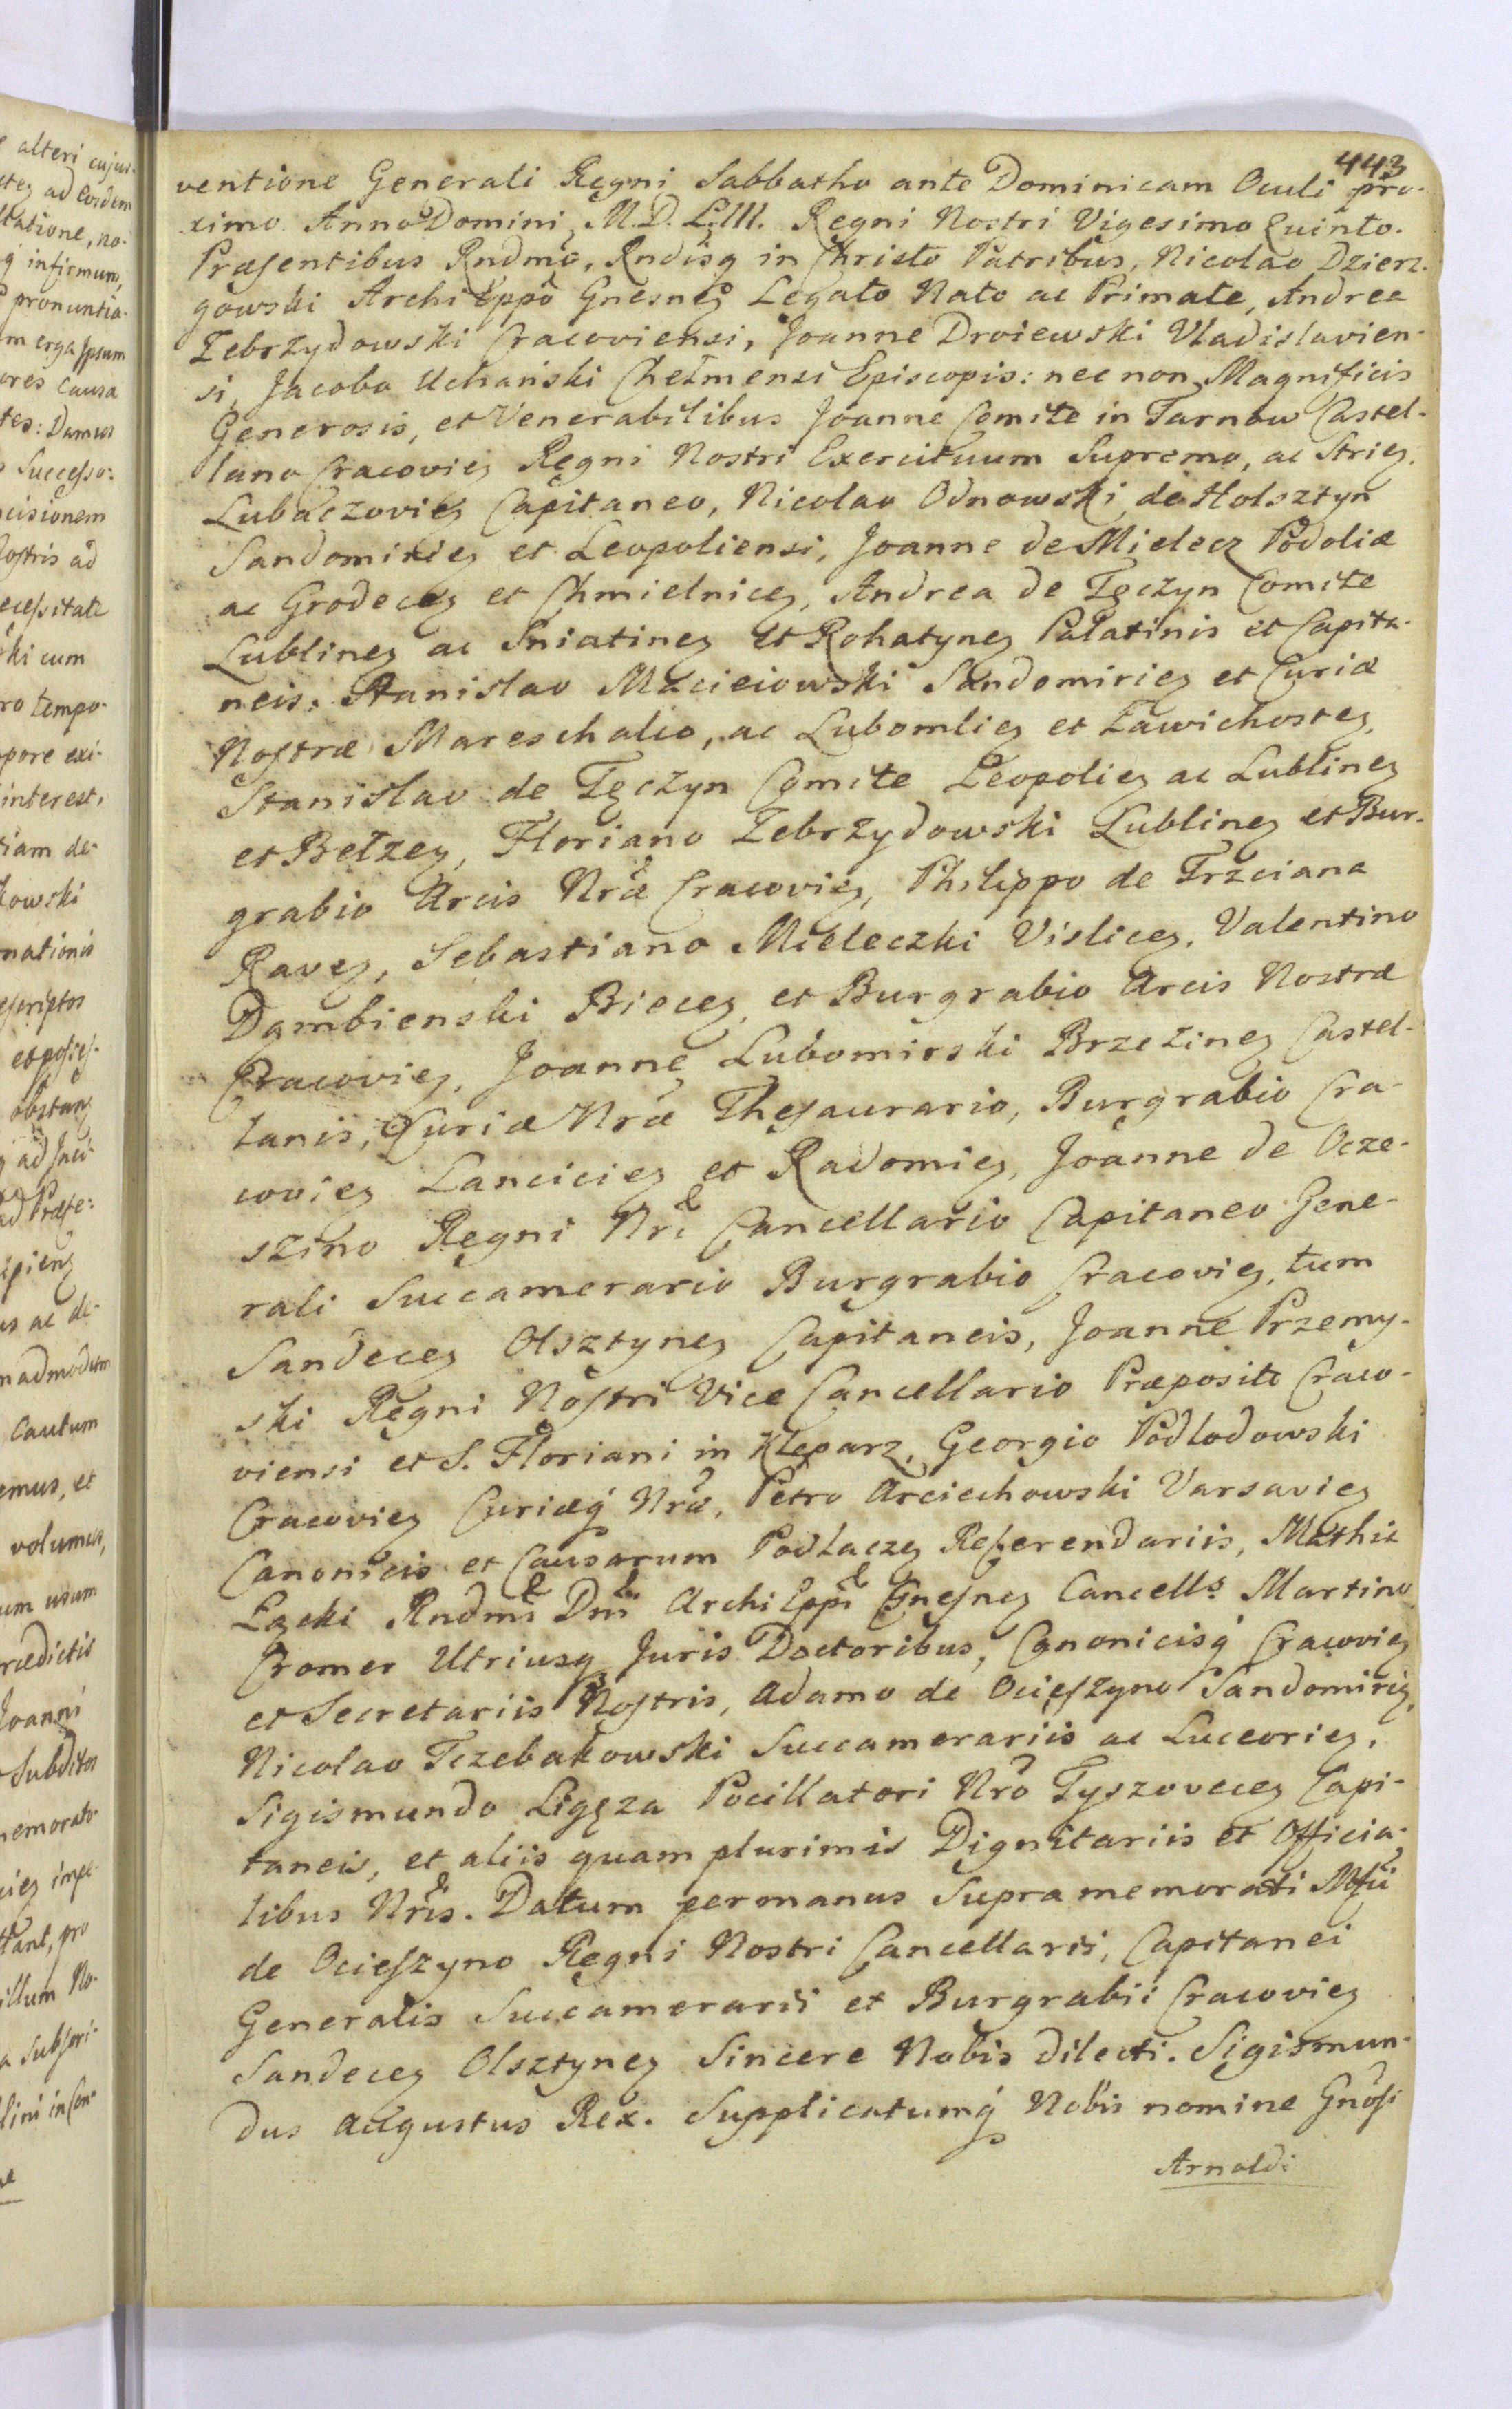 443
ventione Generali Regni Sabbatho ante Dominicam Oculi pro-
ximo Anno Domini M.D.LIII. Regni Nostri Vigesimo Quinto.
Præsentibus Rndmo, Rndisq in Christo Patribus, Nicolao Dzierz-
gowski Archi Eppo Gnesneȝ Legato Nato ac Primate, Andrea
Zebrzydowski Cracoviensi, Joanne Droiewski Vladislavien-
si, Jacobo Uchański Chełmensi Episcopis: nec non Magnificis
Generosis, et Venerabilibus Joanne Comite in Tarnow Castel-
lano Cracovieȝ Regni Nostri Exercituum Supremo, ac Strieȝ.
Lubaczovieȝ Capitaneo, Nicolao Odnowski de Holsztyn
Sandomirieȝ et Leopoliensi, Joanne de Mielecz Podoliæ
ac Grodeceȝ et Chmielniceȝ, Andrea de Tęczyn Comite
Lublineȝ ac Sniatineȝ et Rohatyneȝ Palatinis et Capita-
neis, Stanislao Macieiowski Sandomirieȝ et Curiæ
Nostræ Mareschalco, ac Lubomlieȝ et Zawichosteȝ,
Stanislao de Tęczyn Comite Leopolieȝ ac Lublineȝ
et Bełzeȝ, Floriano Zebrzydowski Lublineȝ et Bur-
grabio Arcis Nræ Cracovieȝ, Philippo de Trzciana
Raveȝ, Sebastiano Mieleczki Visliceȝ, Valentino
Dąmbienski Bieceȝ, et Burgrabio Arcis Nostræ
Cracovieȝ, Joanne Lubomirski Brzezineȝ Castel-
lanis, Curiæ Nræ Thesaurario, Burgrabio Cra-
covieȝ Lancicieȝ et Radomieȝ, Joanne de Ocze-
szino Regni Nri Cancellario Capitaneo Gene-
rali Succamerario Burgrabio Cracovieȝ, tum
Sandeceȝ Olsztyneȝ Capitaneis, Joanne Przemy-
ski Regni Nostri Vice Cancellario Præposito Craco-
viensi et S. Floriani in Kleparz, Georgio Podlodowski
Cracovieȝ Curiæq Nræ, Petro Arciechowski Varsavieȝ
Canonicis et Causarum Podlaczeȝ Referendariis, Mathia
Łącki Rndmi Dni Archi Eppi Gnesneȝ Cancells Martino
Cromer Utriusq Juris Doctoribus, Canonicisq Cracovieȝ
et Secretariis Nostris, Adamo de Ocieszyno Sandomirieȝ,
Nicolao Tczebakowski Succamerariis ac Luceorieȝ,
Sigismundo Ligęza Pocillatori Nro Tyszoveceȝ Capi-
taneis, et aliis quam plurimis Dignitariis et Officia-
libus Nris. Datum per manus Supra memorati Mfci
de Ocieszyno Regni Nostri Cancellarii, Capitanei
Generalis Succamerarii et Burgrabii Cracovieȝ
Sandeceȝ Olsztyneȝ Sincere Nobis dilecti. Sigismun-
dus Augustus Rex. Supplicatumq Nobis nomine Gnosi
Arnoldi